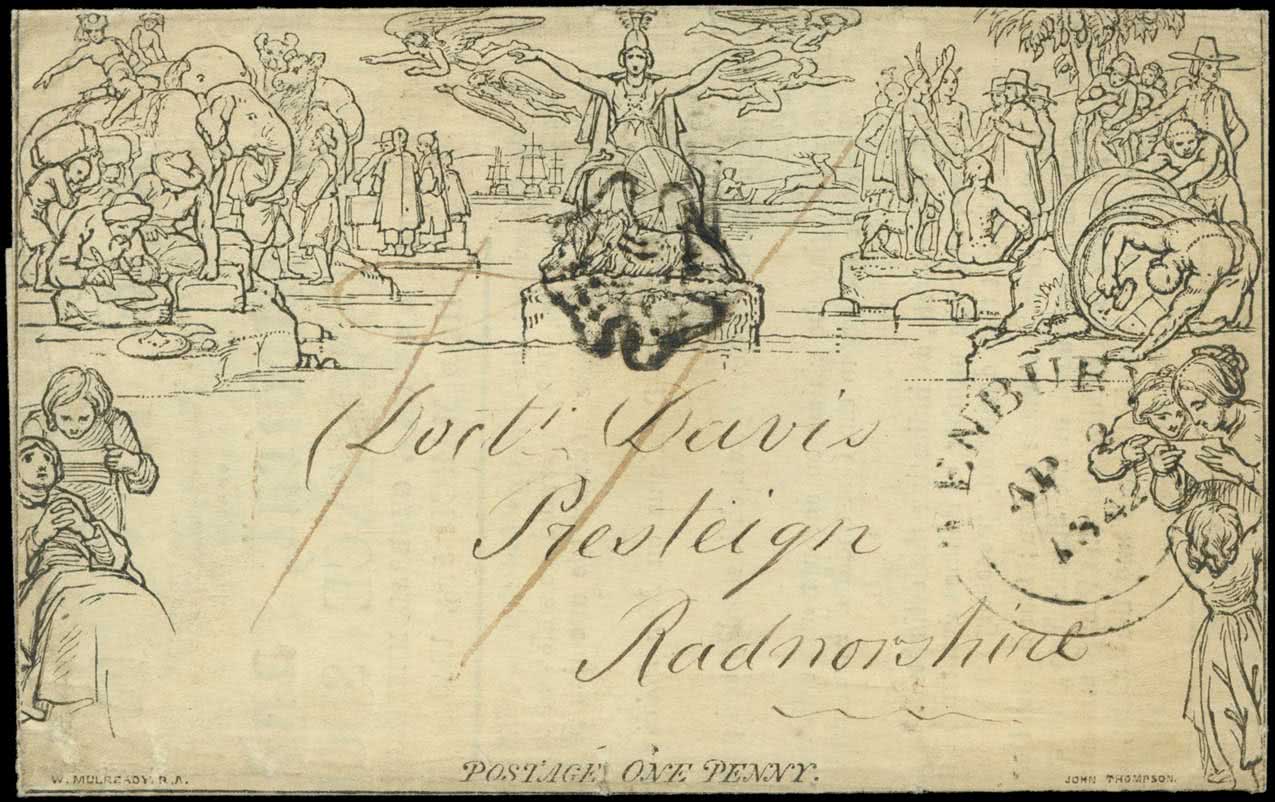 Doctr. Davis
Presteign
Radnorshire
ENBUR
AP 2
1842
POSTAGE ONE PENNY.
W. MULREADY. R.A.
JOHN THOMPSON.